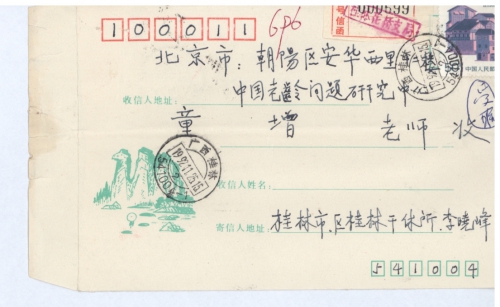 100011
606
000599
中国人民邮
北京市：朝阳区安华西里
收信人地址：
中国老龄问题研究中心
童 增 老师 收
广西桂林
收信人姓名：
寄信人地址：
桂林市.区桂林干休所.李晓峰
541004